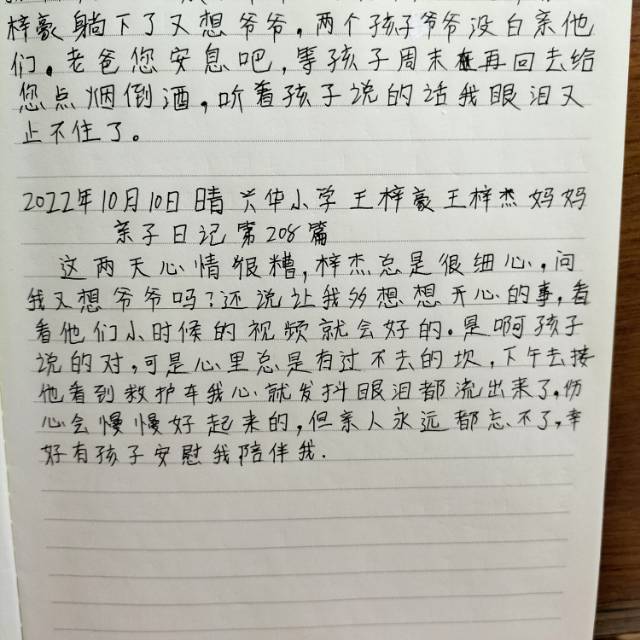 梓豪躺下了又想爷爷，两个孩子爷爷没白亲他
们。老爸您安息吧，等孩子周末再回去给
您点烟倒酒，听着孩子说的话我眼泪又
止不住了。
2022年10月10日晴 兴华小学王梓豪王梓杰妈妈
亲子日记第208篇
这两天心情很糟，梓杰总是很细心，问
我又想爷爷吗？还说让我多想想开心的事，看
看他们小时候的视频就会好的。是啊孩子
说的对，可是心里总是有过不去的坎，下午去接
他看到救护车我心就发抖眼泪都流出来了，伤
心会慢慢好起来的，但亲人永远都忘不了，幸
好有孩子安慰我陪伴我.